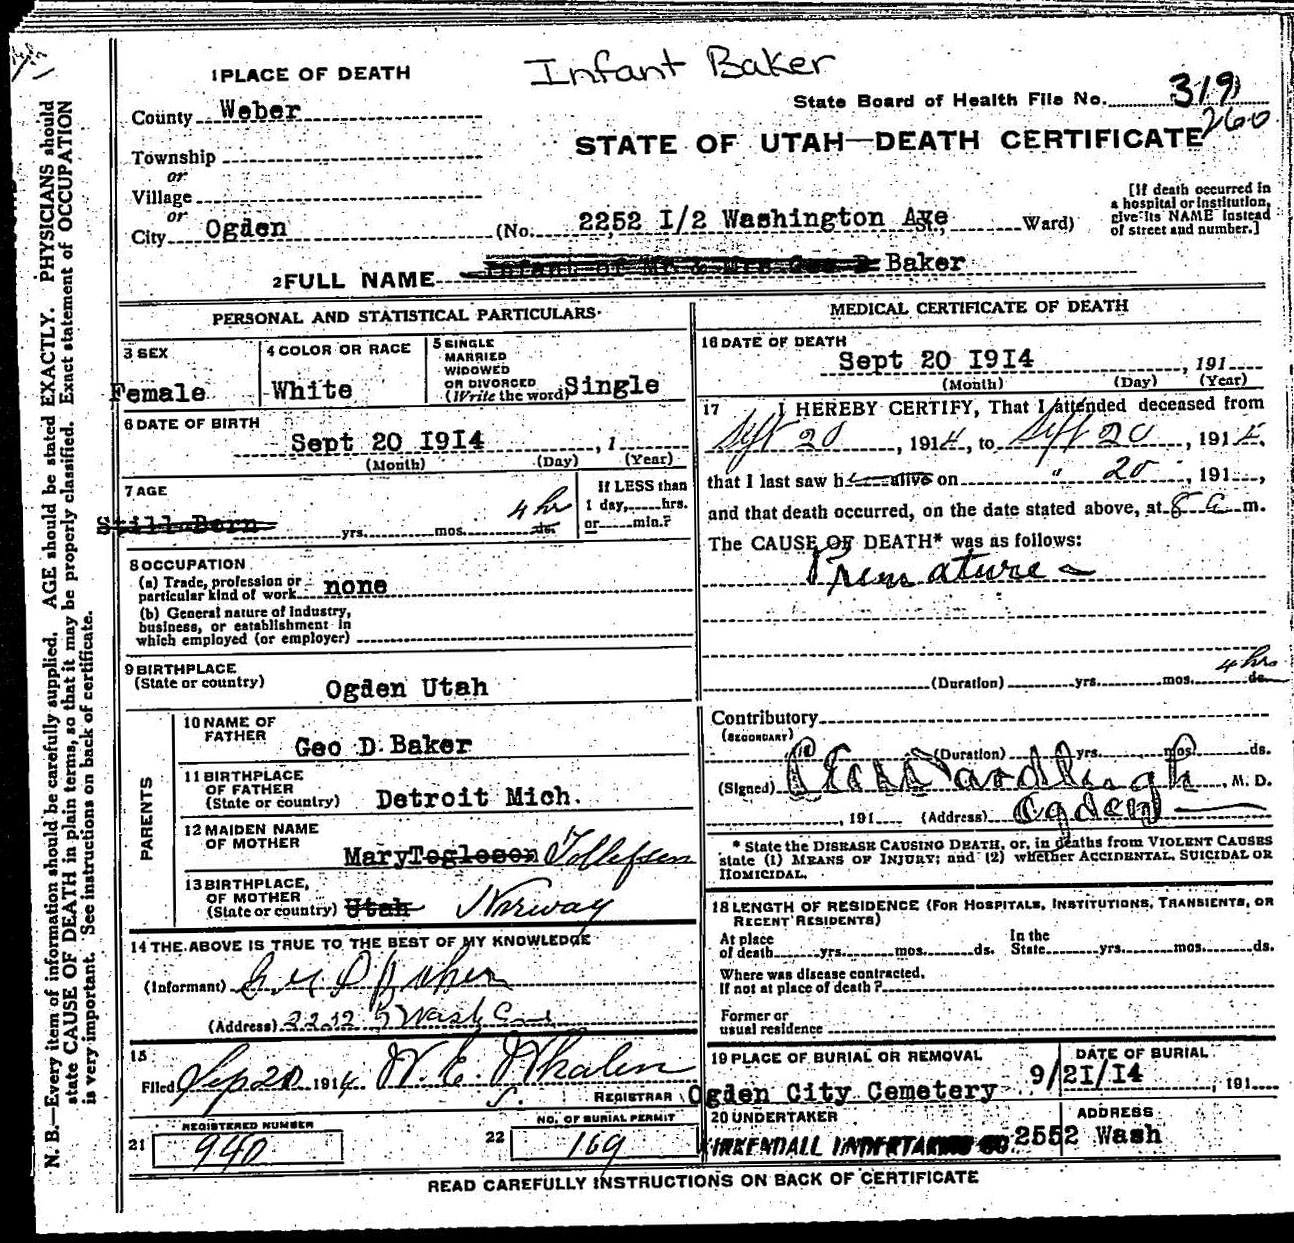 Infant Baker
1 PLACE OF DEATH
County Weber
State Board of Health File No. 319
260
STATE OF UTAH—DEATH CERTIFICATE
Township
or
Village
or
City Ogden (No. 2252 I/2 Washington Axe St., Ward)
[If death occurred in
a hospital or institution,
give its NAME instead
of street and number.]
2 FULL NAME Infant of Mr & Mrs Geo D Baker
PERSONAL AND STATISTICAL PARTICULARS
3 SEX
Female
4 COLOR OR RACE
White
5 SINGLE
MARRIED
WIDOWED
OR DIVORCED
(Write the word) Single
6 DATE OF BIRTH
Sept 20 I9I4, 1
(Month) (Day) (Year)
7 AGE
Still Born yrs. mos. 4 hr ds.
If LESS than
1 day, hrs.
or min.?
8 OCCUPATION
(a) Trade, profession or
particular kind of work none
(b) General nature of industry,
business, or establishment in
which employed (or employer)
9 BIRTHPLACE
(State or country) Ogden Utah
PARENTS
10 NAME OF
FATHER Geo D Baker
11 BIRTHPLACE
OF FATHER
(State or country) Detroit Mich.
12 MAIDEN NAME
OF MOTHER Mary Togleson Tollefsen
13 BIRTHPLACE,
OF MOTHER
(State or country) Utah Norway
14 THE ABOVE IS TRUE TO THE BEST OF MY KNOWLEDGE
(Informant) Geo D Baker
(Address) 2252 ½ Wash Ave
15
Filed Sep 20 1914 W. E. Whalen
REGISTRAR
REGISTERED NUMBER
21 940
NO. OF BURIAL PERMIT
22 169
MEDICAL CERTIFICATE OF DEATH
16 DATE OF DEATH
Sept 20 I9I4, 191
(Month) (Day) (Year)
17 I HEREBY CERTIFY, That I attended deceased from
Sept 20, 1914, to Sept 20, 1914,
that I last saw h alive on " 20, 191,
and that death occurred, on the date stated above, at 8 a m.
The CAUSE OF DEATH* was as follows:
Premature
(Duration) yrs. mos. 4 hrs ds.
Contributory
(SECONDARY)
(Duration) yrs. mos. ds.
(Signed) M. D.
, 191 (Address) Ogden
* State the DISEASE CAUSING DEATH, or, in deaths from VIOLENT CAUSES
state (1) MEANS OF INJURY; and (2) whether ACCIDENTAL, SUICIDAL OR
HOMICIDAL.
18 LENGTH OF RESIDENCE (FOR HOSPITALS, INSTITUTIONS, TRANSIENTS, OR
RECENT RESIDENTS)
At place
of death yrs. mos. ds.
In the
State yrs. mos. ds.
Where was disease contracted,
If not at place of death?
Former or
usual residence
19 PLACE OF BURIAL OR REMOVAL
Ogden City Cemetery
DATE OF BURIAL
9/2I/I4, 191
20 UNDERTAKER
KIRKENDALL UNDERTAKING CO.
ADDRESS
2552 Wash
READ CAREFULLY INSTRUCTIONS ON BACK OF CERTIFICATE
N. B.—Every item of information should be carefully supplied. AGE should be stated EXACTLY. PHYSICIANS should
state CAUSE OF DEATH in plain terms, so that it may be properly classified. Exact statement of OCCUPATION
is very important. See instructions on back of certificate.